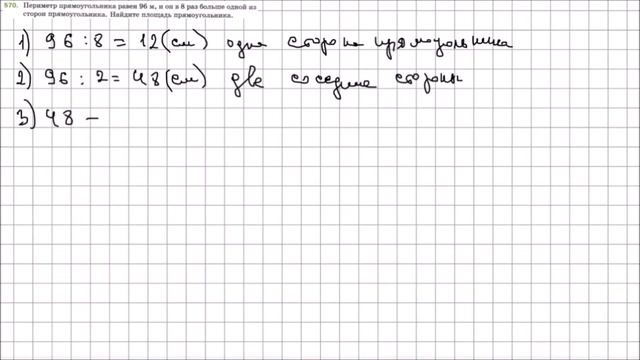 570. Периметр прямоугольника равен 96 м, и он в 8 раз больше одной из
сторон прямоугольника. Найдите площадь прямоугольника.
1) 96 : 8 = 12 (см) одна сторона прямоугольника
2) 96 : 2 = 48 (см) две соседние стороны
3) 48 –